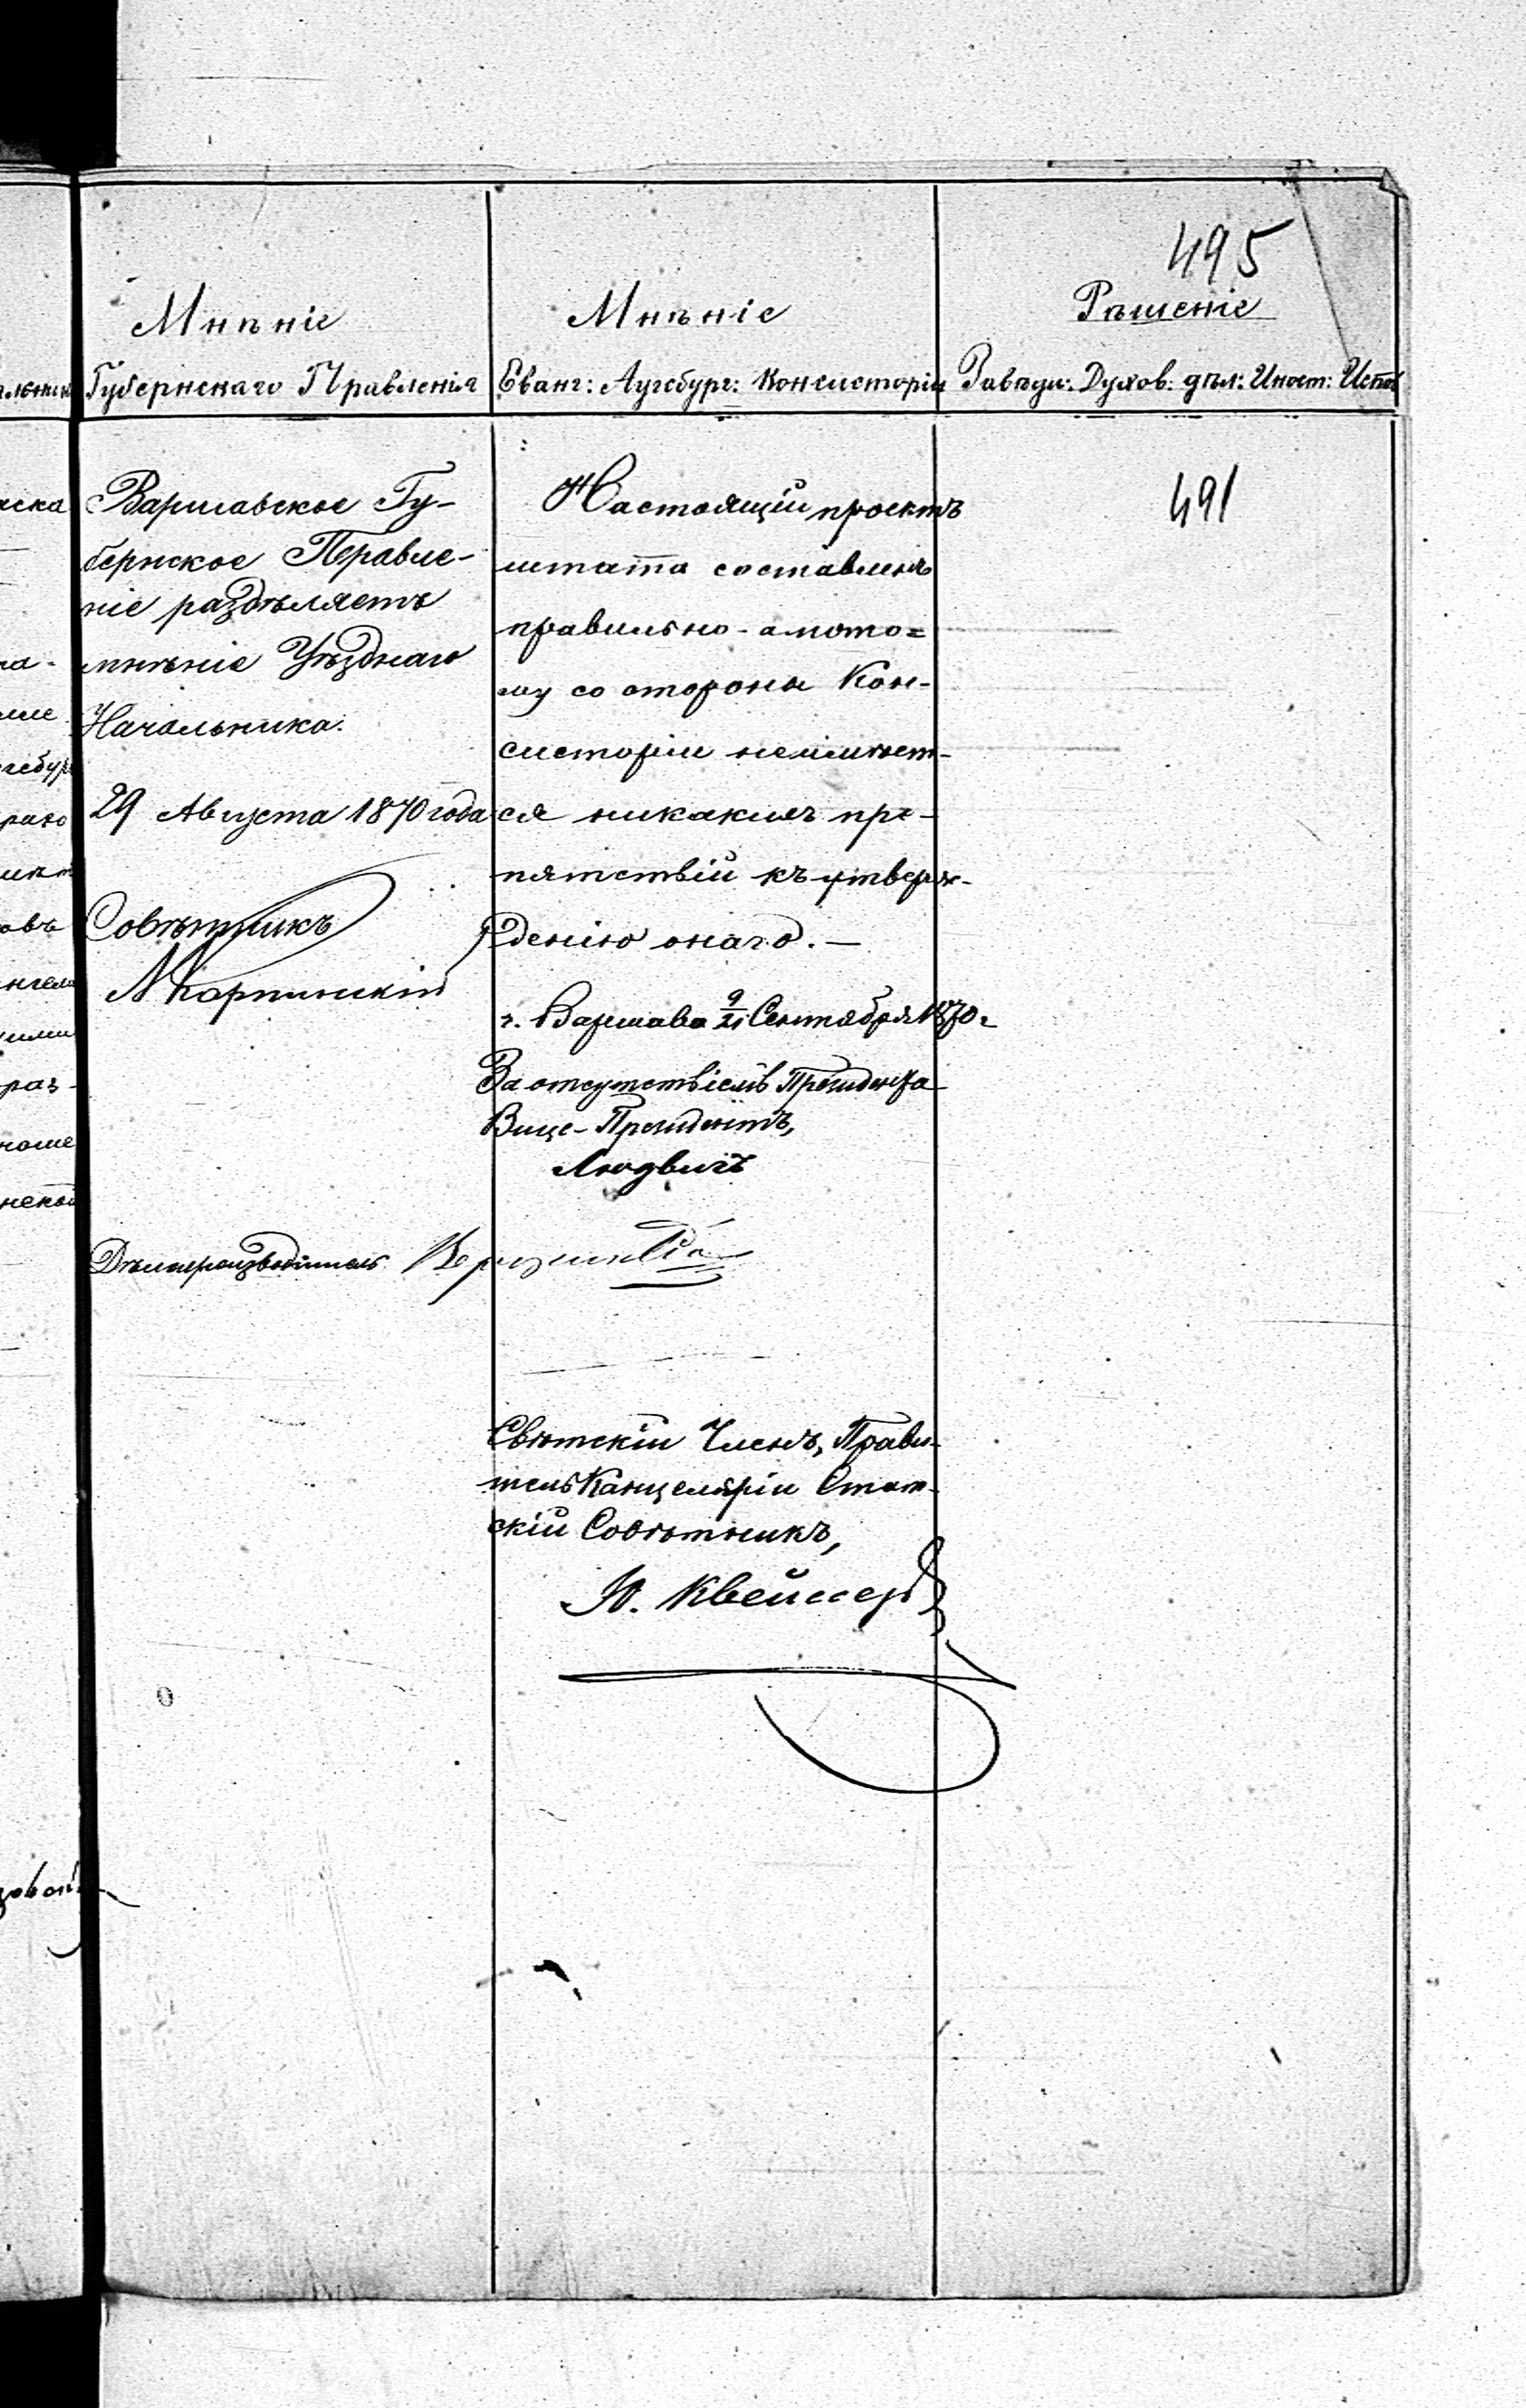 495
Мнѣніе
Губернскаго Правленія
Мнѣніе
Еванг: Аугсбург: Консисторіи
Рѣшеніе
Завѣды: Духов: дѣл: Иност: Испов
491
Варшавское Гу-
бернское Правле-
ніе раздѣляетъ
мнѣніе Уѣзднаго
Начальника.
29 Августа 1870 года
Совѣтникъ
Карпинскій
Дѣлопроизводитель
Настоящій проектъ
штата составленъ
правильно - а пото=
му со стороны Кон-
систоріи неимѣет-
ся никакихъ пре-
пятствій къ утверж-
денію онаго. —
г. Варшава 9/21 Сентября 1870 г
За отсутствіемъ Президента
Вице-Президентъ,
Людвигъ
Свѣтскій Членъ, Прави-
тель Канцеляріи Стат-
скій Совѣтникъ,
Ю. Квейссер